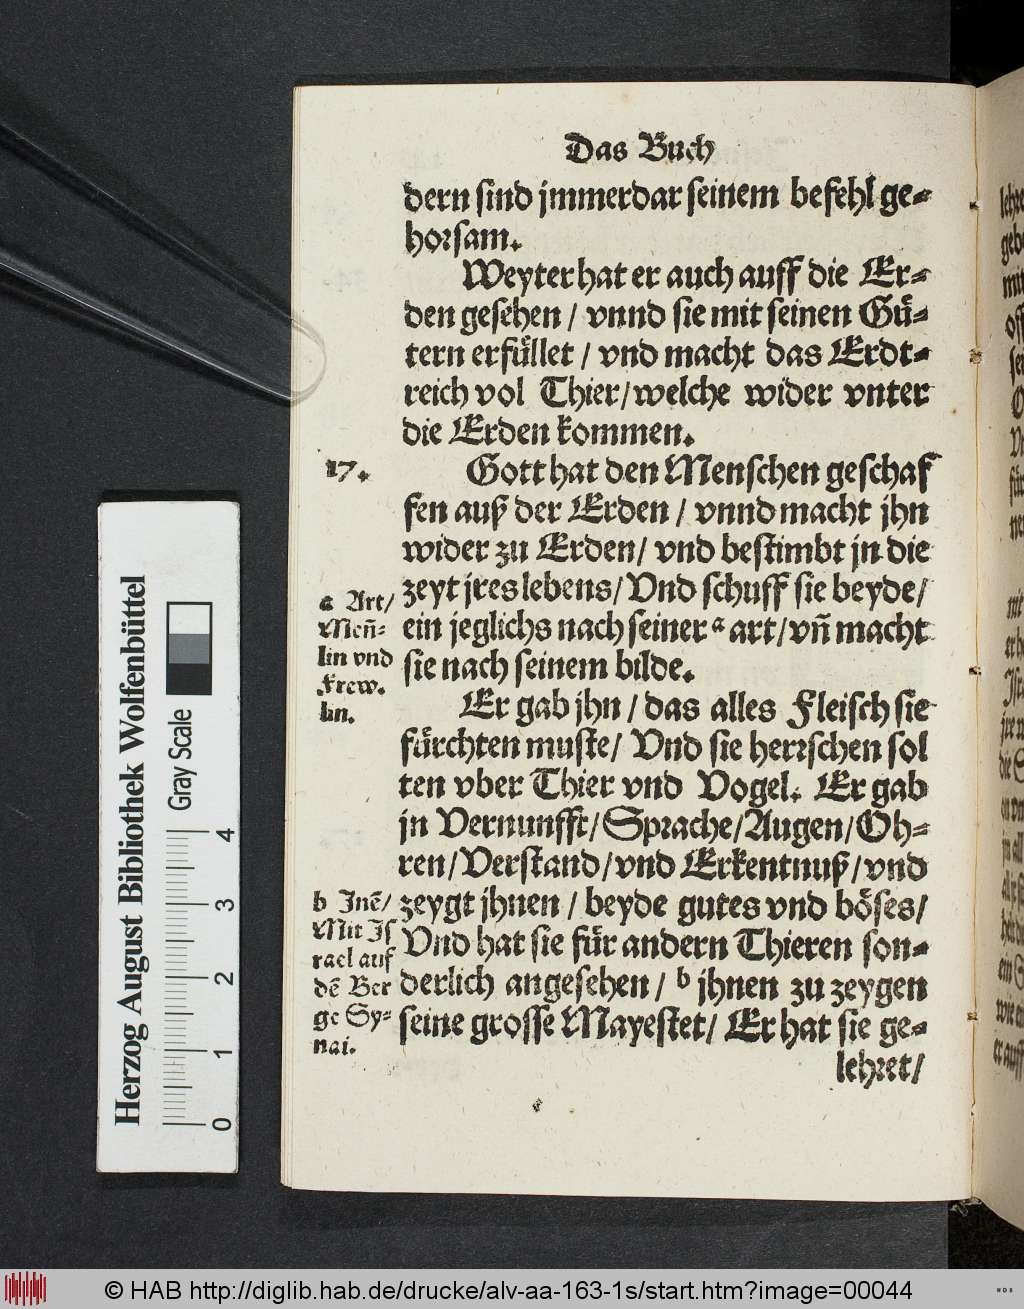 Das Buch
dern sind jmmerdar seinem befehl ge⸗
horsam.
Weyter hat er auch auff die Er⸗
den gesehen / vnnd sie mit seinen Guͤ⸗
tern erfuͤllet / vnd macht das Erdt⸗
reich vol Thier/welche wider vnter
die Erden kommen.
17.
Gott hat den Menschen geschaf
fen auß der Erden / vnnd macht jhn
wider zu Erden/ vnd bestimbt jn die
zeyt jres lebens/ Vnd schuff sie beyde/
ein jeglichs nach seiner a art/vñ macht
sie nach seinem bilde.
a Art/
Meñ⸗
lin vnd
Frew.
lin.
Er gab jhn / das alles Fleisch sie
faͤrchten muste/ Vnd sie herrschen sol
ten vber Thier vnd Vogel. Er gab
jn Vernunfft/Sprache/Augen/Oh⸗
ren/Verstand/vnd Erkentnuß/vnd
zeygt jhnen / beyde gutes vnd boͤses/
Vnd hat sie fuͤr andern Thieren son⸗
derlich angesehen / b jhnen zu zeygen
seine grosse Mayestet/ Er hat sie ge⸗
lehret/
b Jnē/
Mit Js
rael auf
dē Ber
ge Sy⸗
nai.
Herzog August Bibliothek Wolfenbüttel
Gray Scale
0 1 2 3 4
© HAB http://diglib.hab.de/drucke/alv-aa-163-1s/start.htm?image=00044